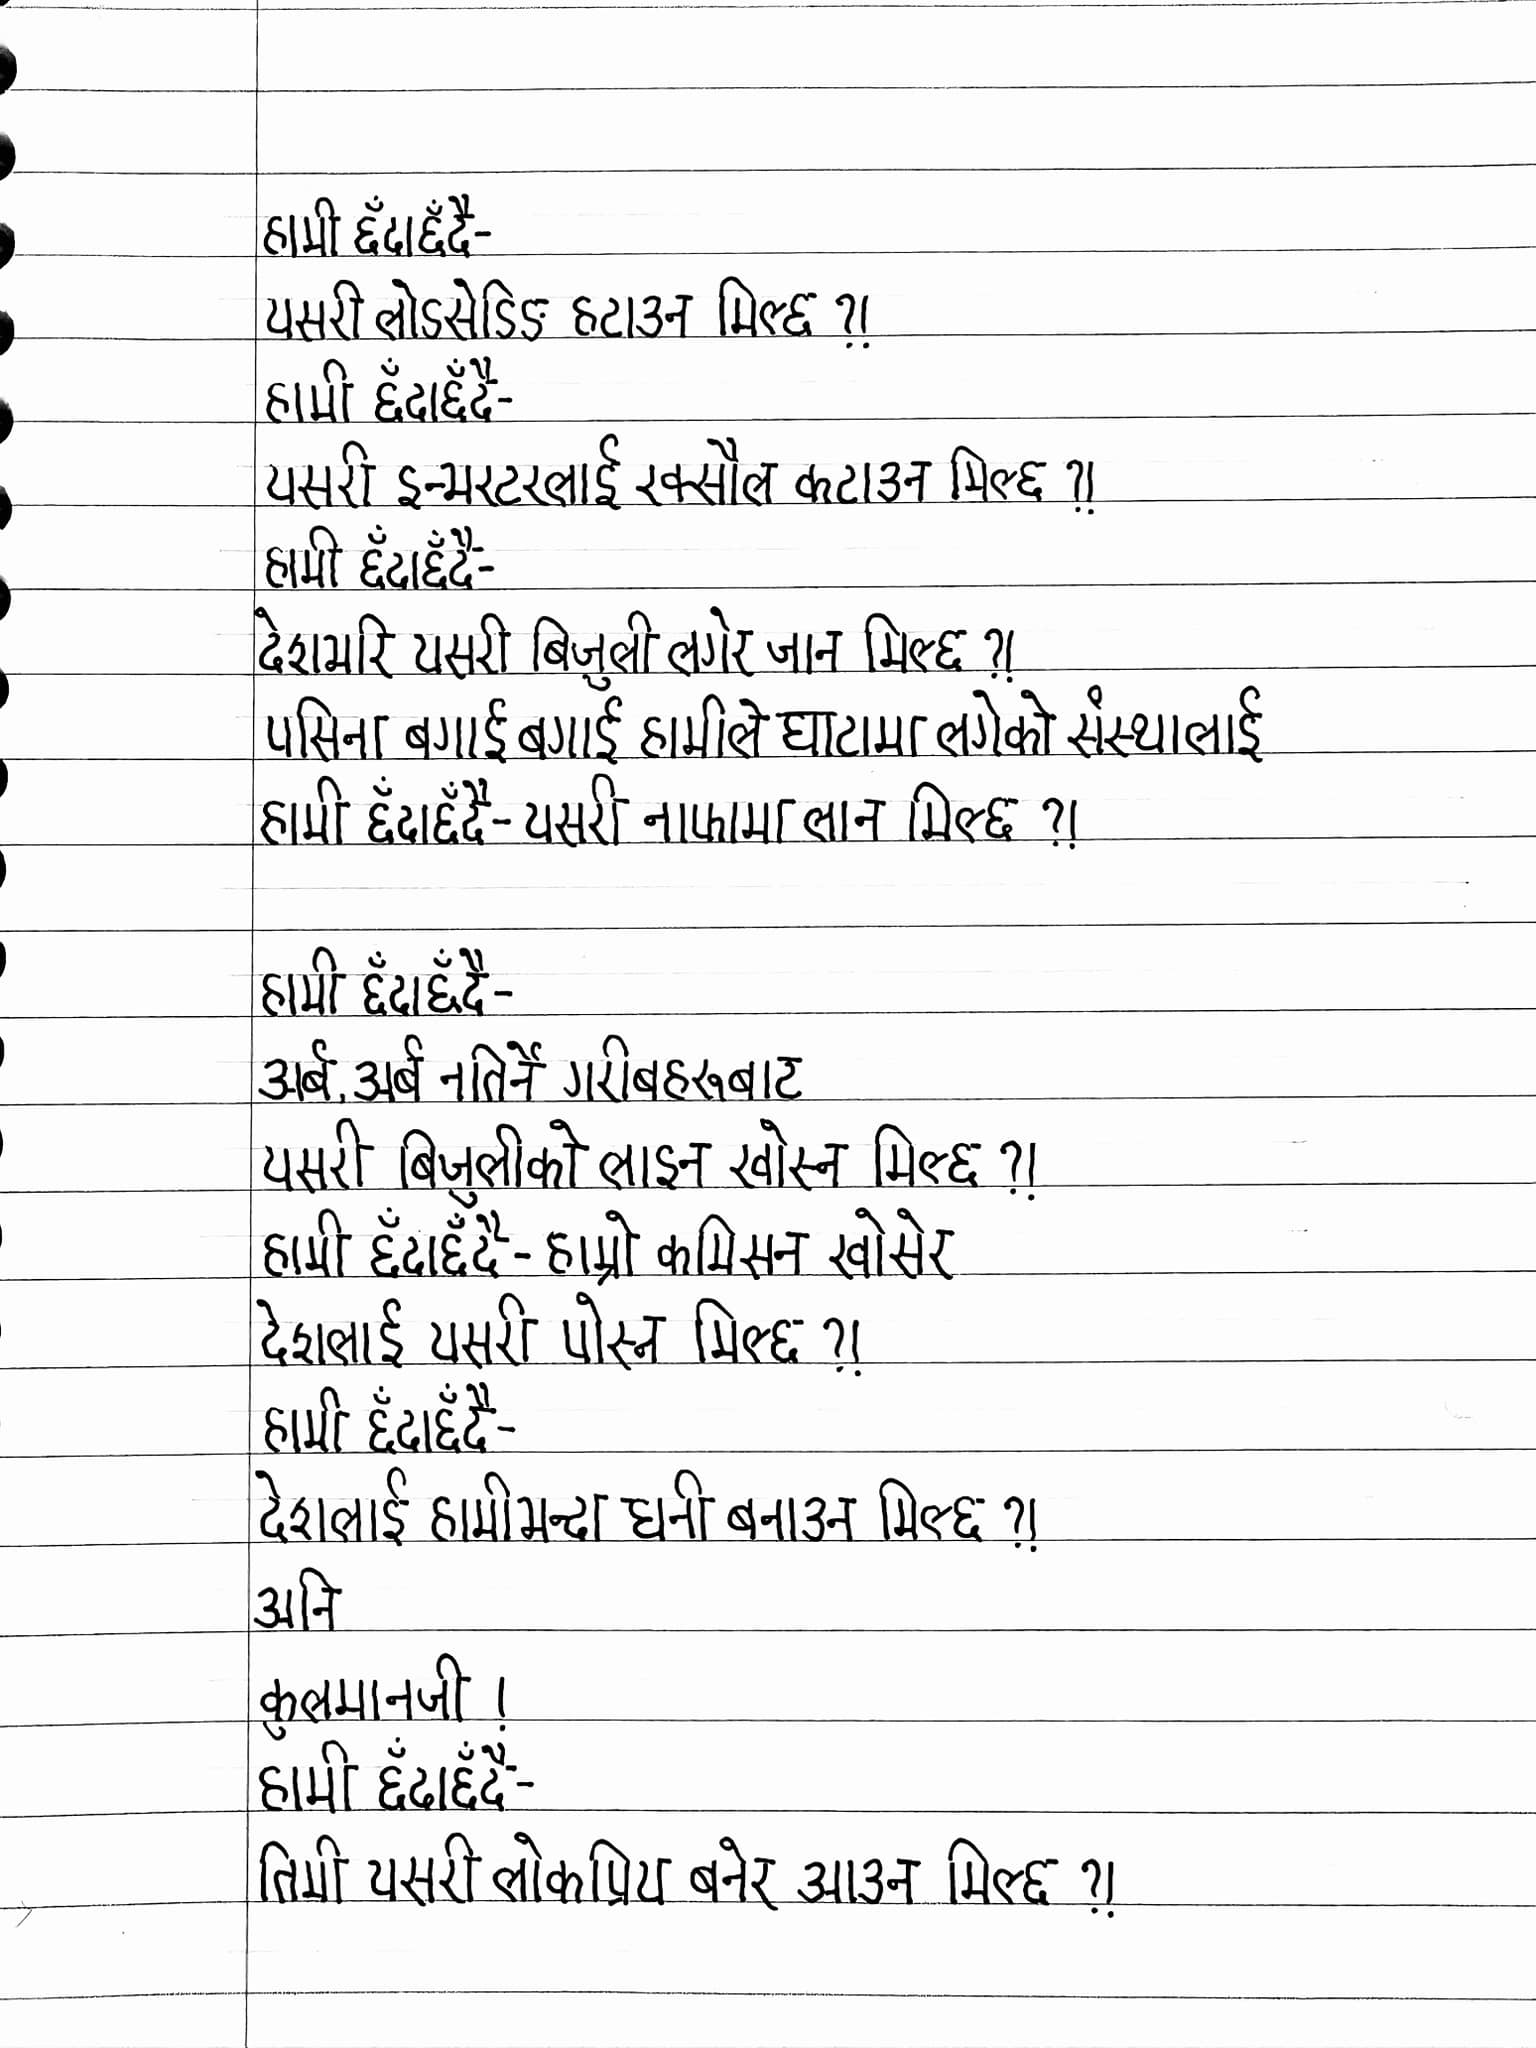 हामी छँदाछँदै-
यसरी लोडसेडिङ हटाउन मिल्छ ?!
हामी छँदाछँदै-
यसरी इन्भरटरलाई रक्सौल कटाउन मिल्छ ?!
हामी छँदाछँदै-
देशभरि यसरी बिजुली लगेर जान मिल्छ ?!
पसिना बगाई बगाई हामीले घाटामा लगेको संस्थालाई
हामी छँदाछँदै- यसरी नाफामा लान मिल्छ ?!
हामी छँदाछँदै-
अर्ब, अर्ब नतिर्ने गरीबहरूबाट
यसरी बिजुलीको लाइन खोस्न मिल्छ ?!
हामी छँदाछँदै- हाम्रो कमिसन खोसेर
देशलाई यसरी पोस्न मिल्छ ?!
हामी छँदाछँदै-
देशलाई हामीभन्दा धनी बनाउन मिल्छ ?!
अनि
कुलमानजी !
हामी छँदाछँदै-
तिमी यसरी लोकप्रिय बनेर आउन मिल्छ ?!